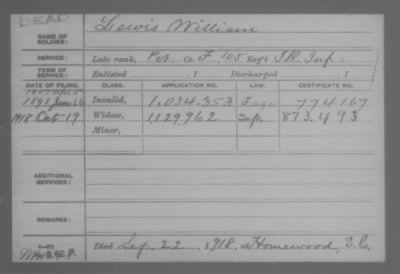 DEAD
Lewis William
NAME OF SOLDIER:
SERVICE: Late rank, Pvt. Co. F, 105 Reg't Ill. Inf.
TERM OF SERVICE: Enlisted , 1 Discharged , 1
DATE OF FILING. CLASS. APPLICATION NO. LAW. CERTIFICATE NO.
1891 June 26 Invalid, 1.034.353 774.167
1918 Oct 19 Widow, 1,129,962 873.493
Minor,
ADDITIONAL SERVICES:
REMARKS:
Died Sep. 22, 1918, at Homewood, S.C.